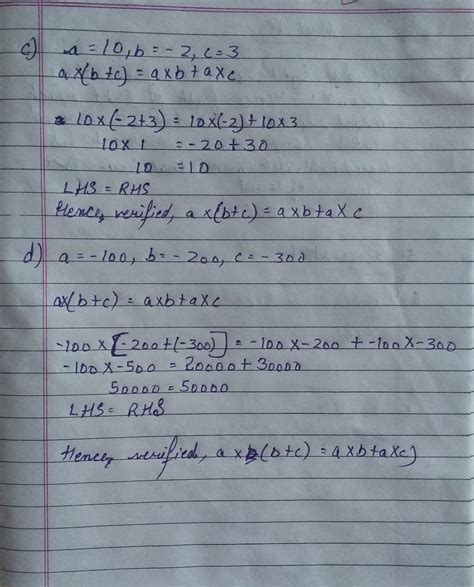 c) a = 10, b = -2, c = 3
a×(b+c) = a×b + a×c
10×(-2+3) = 10×(-2) + 10×3
10×1 = -20+30
10 = 10
LHS = RHS
Hence, verified, a×(b+c) = a×b+a×c
d) a = -100, b = -200, c = -300
a×(b+c) = a×b+a×c
-100×[-200+(-300)] = -100×-200 + -100×-300
-100×-500 = 20000+30000
50000 = 50000
LHS = RHS
Hence, verified, a×(b+c) = a×b+a×c)